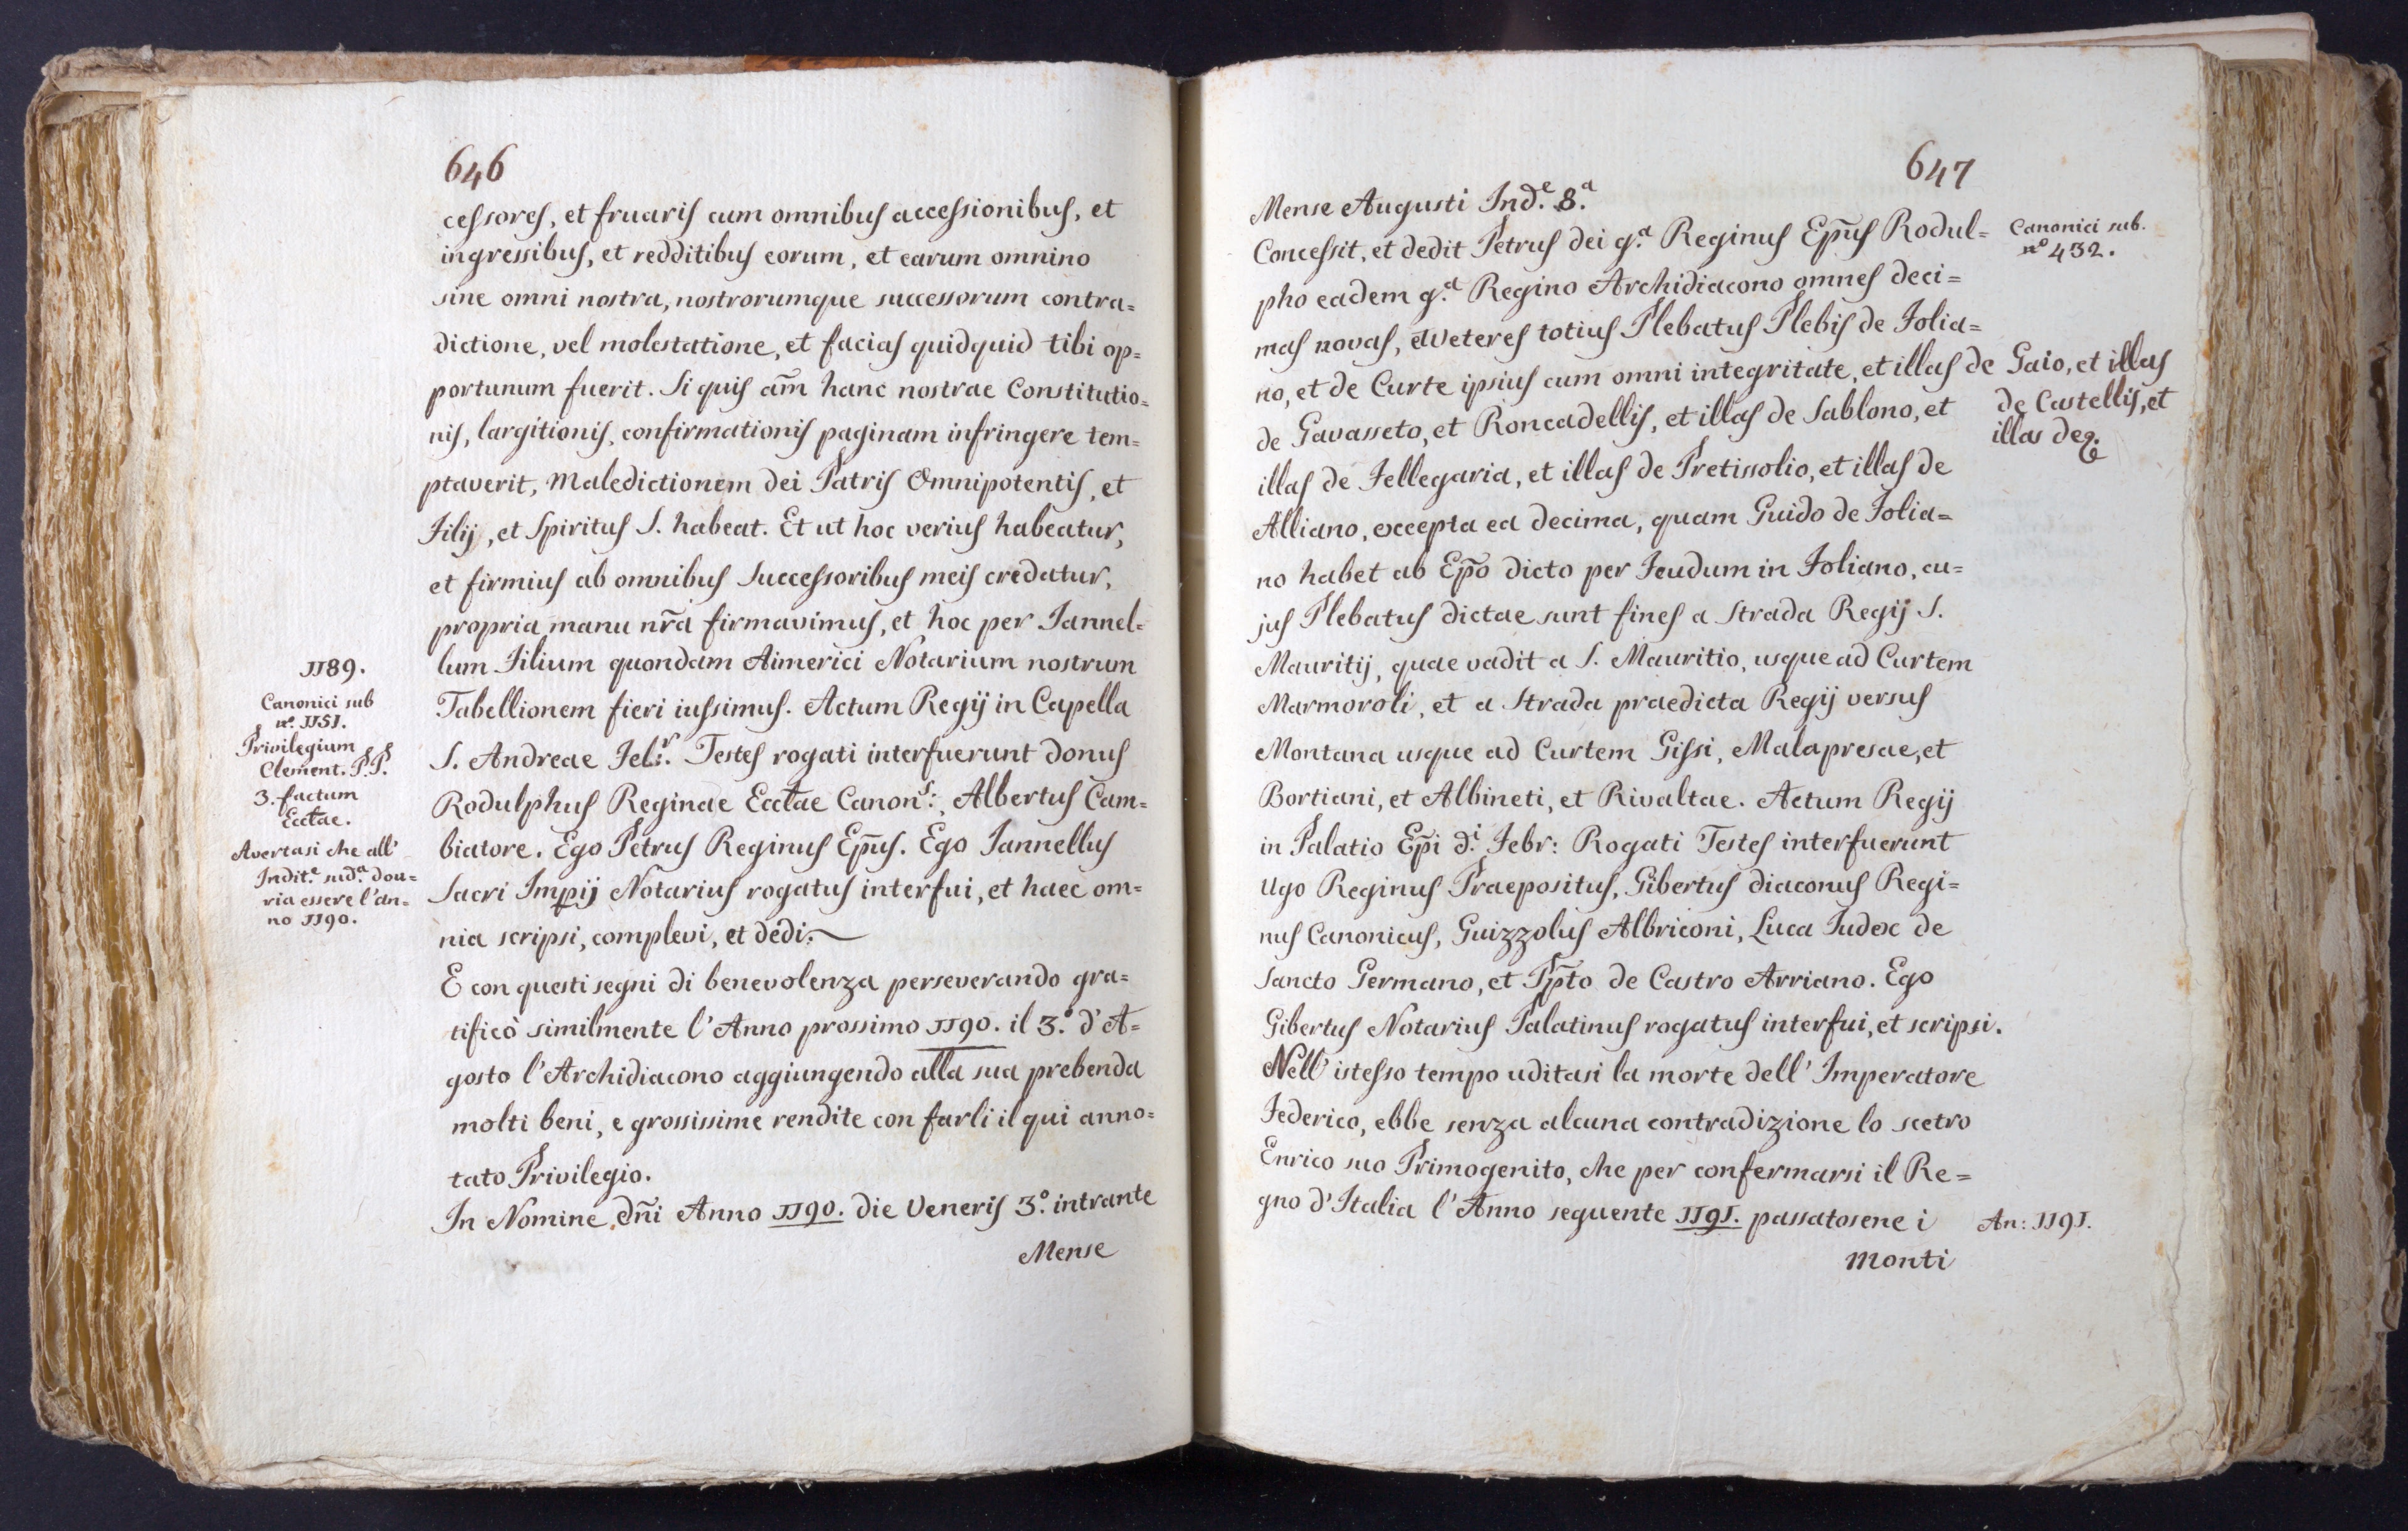 646
cessores, et fruaris cum omnibus accessionibus, et
ingressibus, et redditibus eorum, et earum omnino
sine omni nostra, nostrorumque successorum contra=
dictione, vel molestatione, et facias quidquid tibi op=
portunum fuerit. Si quis am̃ hanc nostrae Constitutio=
nis, largitionis, confirmationis paginam infringere tem=
ptaverit, Maledictionem dei Patris Omnipotentis, et
Filij, et Spiritus S. habeat. Et ut hoc verius habeatur,
et firmius ab omnibus Successoribus meis credatur,
propria manu nr̃a firmavimus, et hoc per Iannel=
lum Filium quondam Aimerici Notarium nostrum
Tabellionem fieri iussimus. Actum Regij in Capella
S. Andreae Fel:r. Testes rogati interfuerunt donus
Rodulphus Reginae Ecctae Canons:, Albertus Cam=
biatore. Ego Petrus Reginus Ep̃us. Ego Iannellus
Sacri Impij Notarius rogatus interfui, et haec om=
nia scripsi, complevi, et dedi.
E con questi segni di benevolenza perseverando gra=
tificò similmente l'Anno prossimo 1190. il 3.º d'A=
gosto l'Archidiacono aggiungendo alla sua prebenda
molti beni, e grossissime rendite con farli il qui anno=
tato Privilegio.
In Nomine dñi Anno 1190. die Veneris 3.º intrante
Mense
1189.
Canonici sub
nº. 1151.
Privilegium
Clement. P.P.
3. factum
Ecctae.
Avertasi che all'
Indit.e sud.a dou=
ria essere l'an=
no 1190.
647
Mense Augusti Ind.e 8.a
Concessit, et dedit Petrus dei g.a Reginus Ep̃us Rodul=
pho eadem g.a Regino Archidiacono omnes deci=
mas novas, et veteres totius Plebatus Plebis de Folia=
no, et de Curte ipsius cum omni integritate, et illas de Gaio, et illas
de Castellis, et
illas de
de Gavasseto, et Roncadellis, et illas de Sablono, et
illas de Fellegaria, et illas de Pretissolio, et illas de
Alliano, excepta ea decima, quam Guido de Folia=
no habet ab Ep̃o dicto per Feudum in Foliano, cu=
jus Plebatus dictae sunt fines a Strada Regij S.
Mauritij, quae vadit a S. Mauritio, usque ad Curtem
Marmoroli, et a Strada praedicta Regij versus
Montana usque ad Curtem Gissi, Malapresae, et
Bortiani, et Albineti, et Rivaltae. Actum Regij
in Palatio Ep̃i d.i Febr: Rogati Testes interfuerunt
Ugo Reginus Praepositus, Gibertus diaconus Regi=
nus Canonicus, Guizzolus Albriconi, Luca Iudex de
Sancto Germano, et Pp̃to de Castro Arriano. Ego
Gibertus Notarius Palatinus rogatus interfui, et scripsi.
Nell' istesso tempo uditasi la morte dell' Imperatore
Federico, ebbe senza alcuna contradizione lo scetro
Enrico suo Primogenito, che per confermarsi il Re=
gno d'Italia l'Anno seguente 1191. passatosene i
Monti
Canonici sub.
nº 432.
An: 1191.